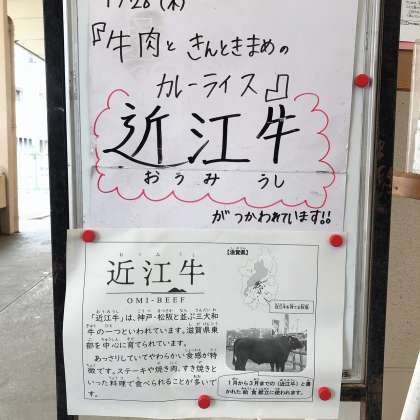 『牛肉ときんときまめの
カレーライス』
近江牛
おうみ うし
がつかわれています!!
おうみうし
近江牛
OMI-BEEF
「近江牛」は、神戸・松阪と並ぶ三大和
牛の一つといわれています。滋賀県東
部を中心に育てられています。
あっさりしていてやわらかい食感が特
徴です。ステーキや焼き肉、すき焼きと
いった料理で食べられることが多いで
す。
【滋賀県】
1月から3月までの「近江牛」と書
かれた給食献立に使われます。